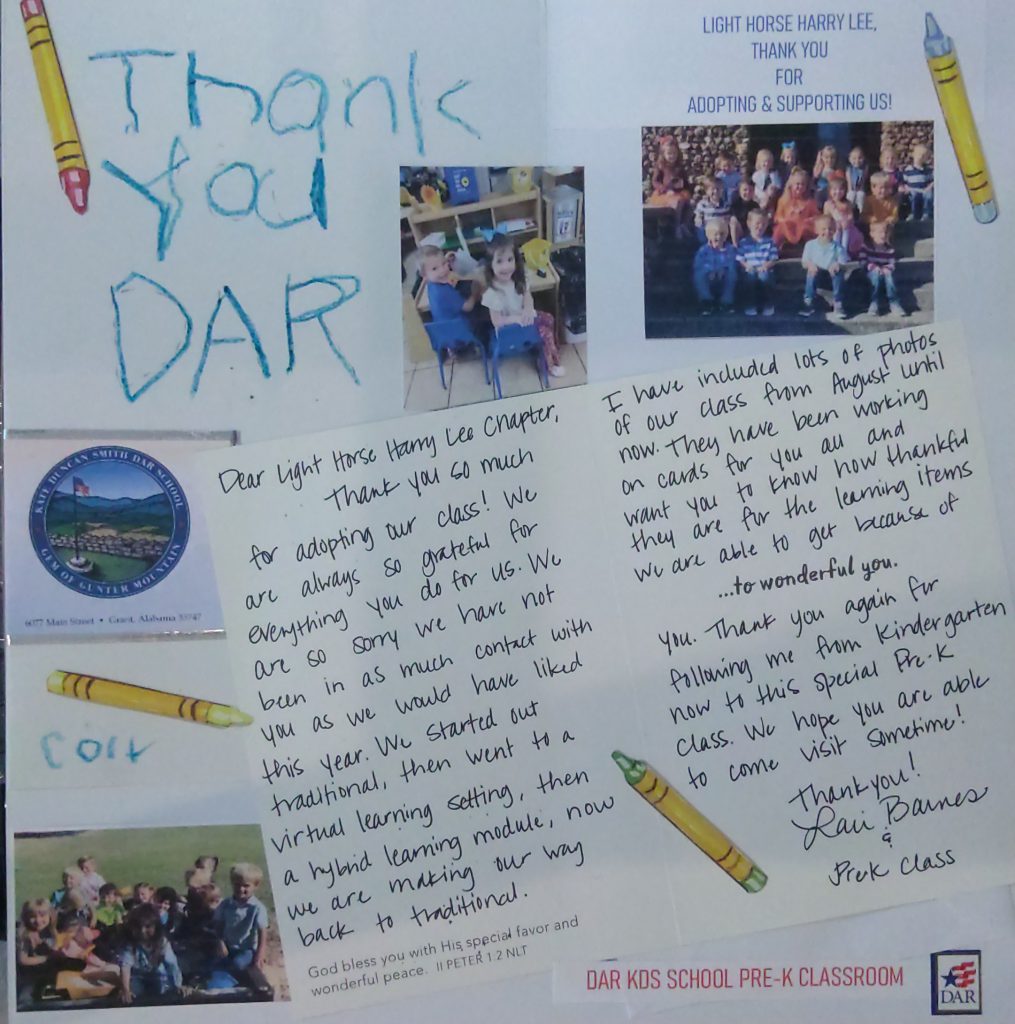 Thank
You
DAR
LIGHT HORSE HARRY LEE,
THANK YOU
FOR
ADOPTING & SUPPORTING US!
KATE DUNCAN SMITH DAR SCHOOL
GEM OF GUNTER MOUNTAIN
6077 Main Street • Grant, Alabama 35747
Colt
Dear Light Horse Harry Lee Chapter,
Thank you so much
for adopting our class! We
are always so grateful for
everything you do for us. We
are so sorry we have not
been in as much contact with
you as we would have liked
this year. We started out
traditional, then went to a
virtual learning setting, then
a hybrid learning module, now
we are making our way
back to traditional.
God bless you with His special favor and
wonderful peace. II PETER 1:2 NLT
I have included lots of photos
of our class from August until
now. They have been working
on cards for you all and
want you to know how thankful
they are for the learning items
we are able to get because of
...to wonderful you.
you. Thank you again for
following me from Kindergarten
now to this special Pre-K
class. We hope you are able
to come visit sometime!
Thank you!
Barnes
&
Pre-K Class
DAR KDS SCHOOL PRE-K CLASSROOM
DAR